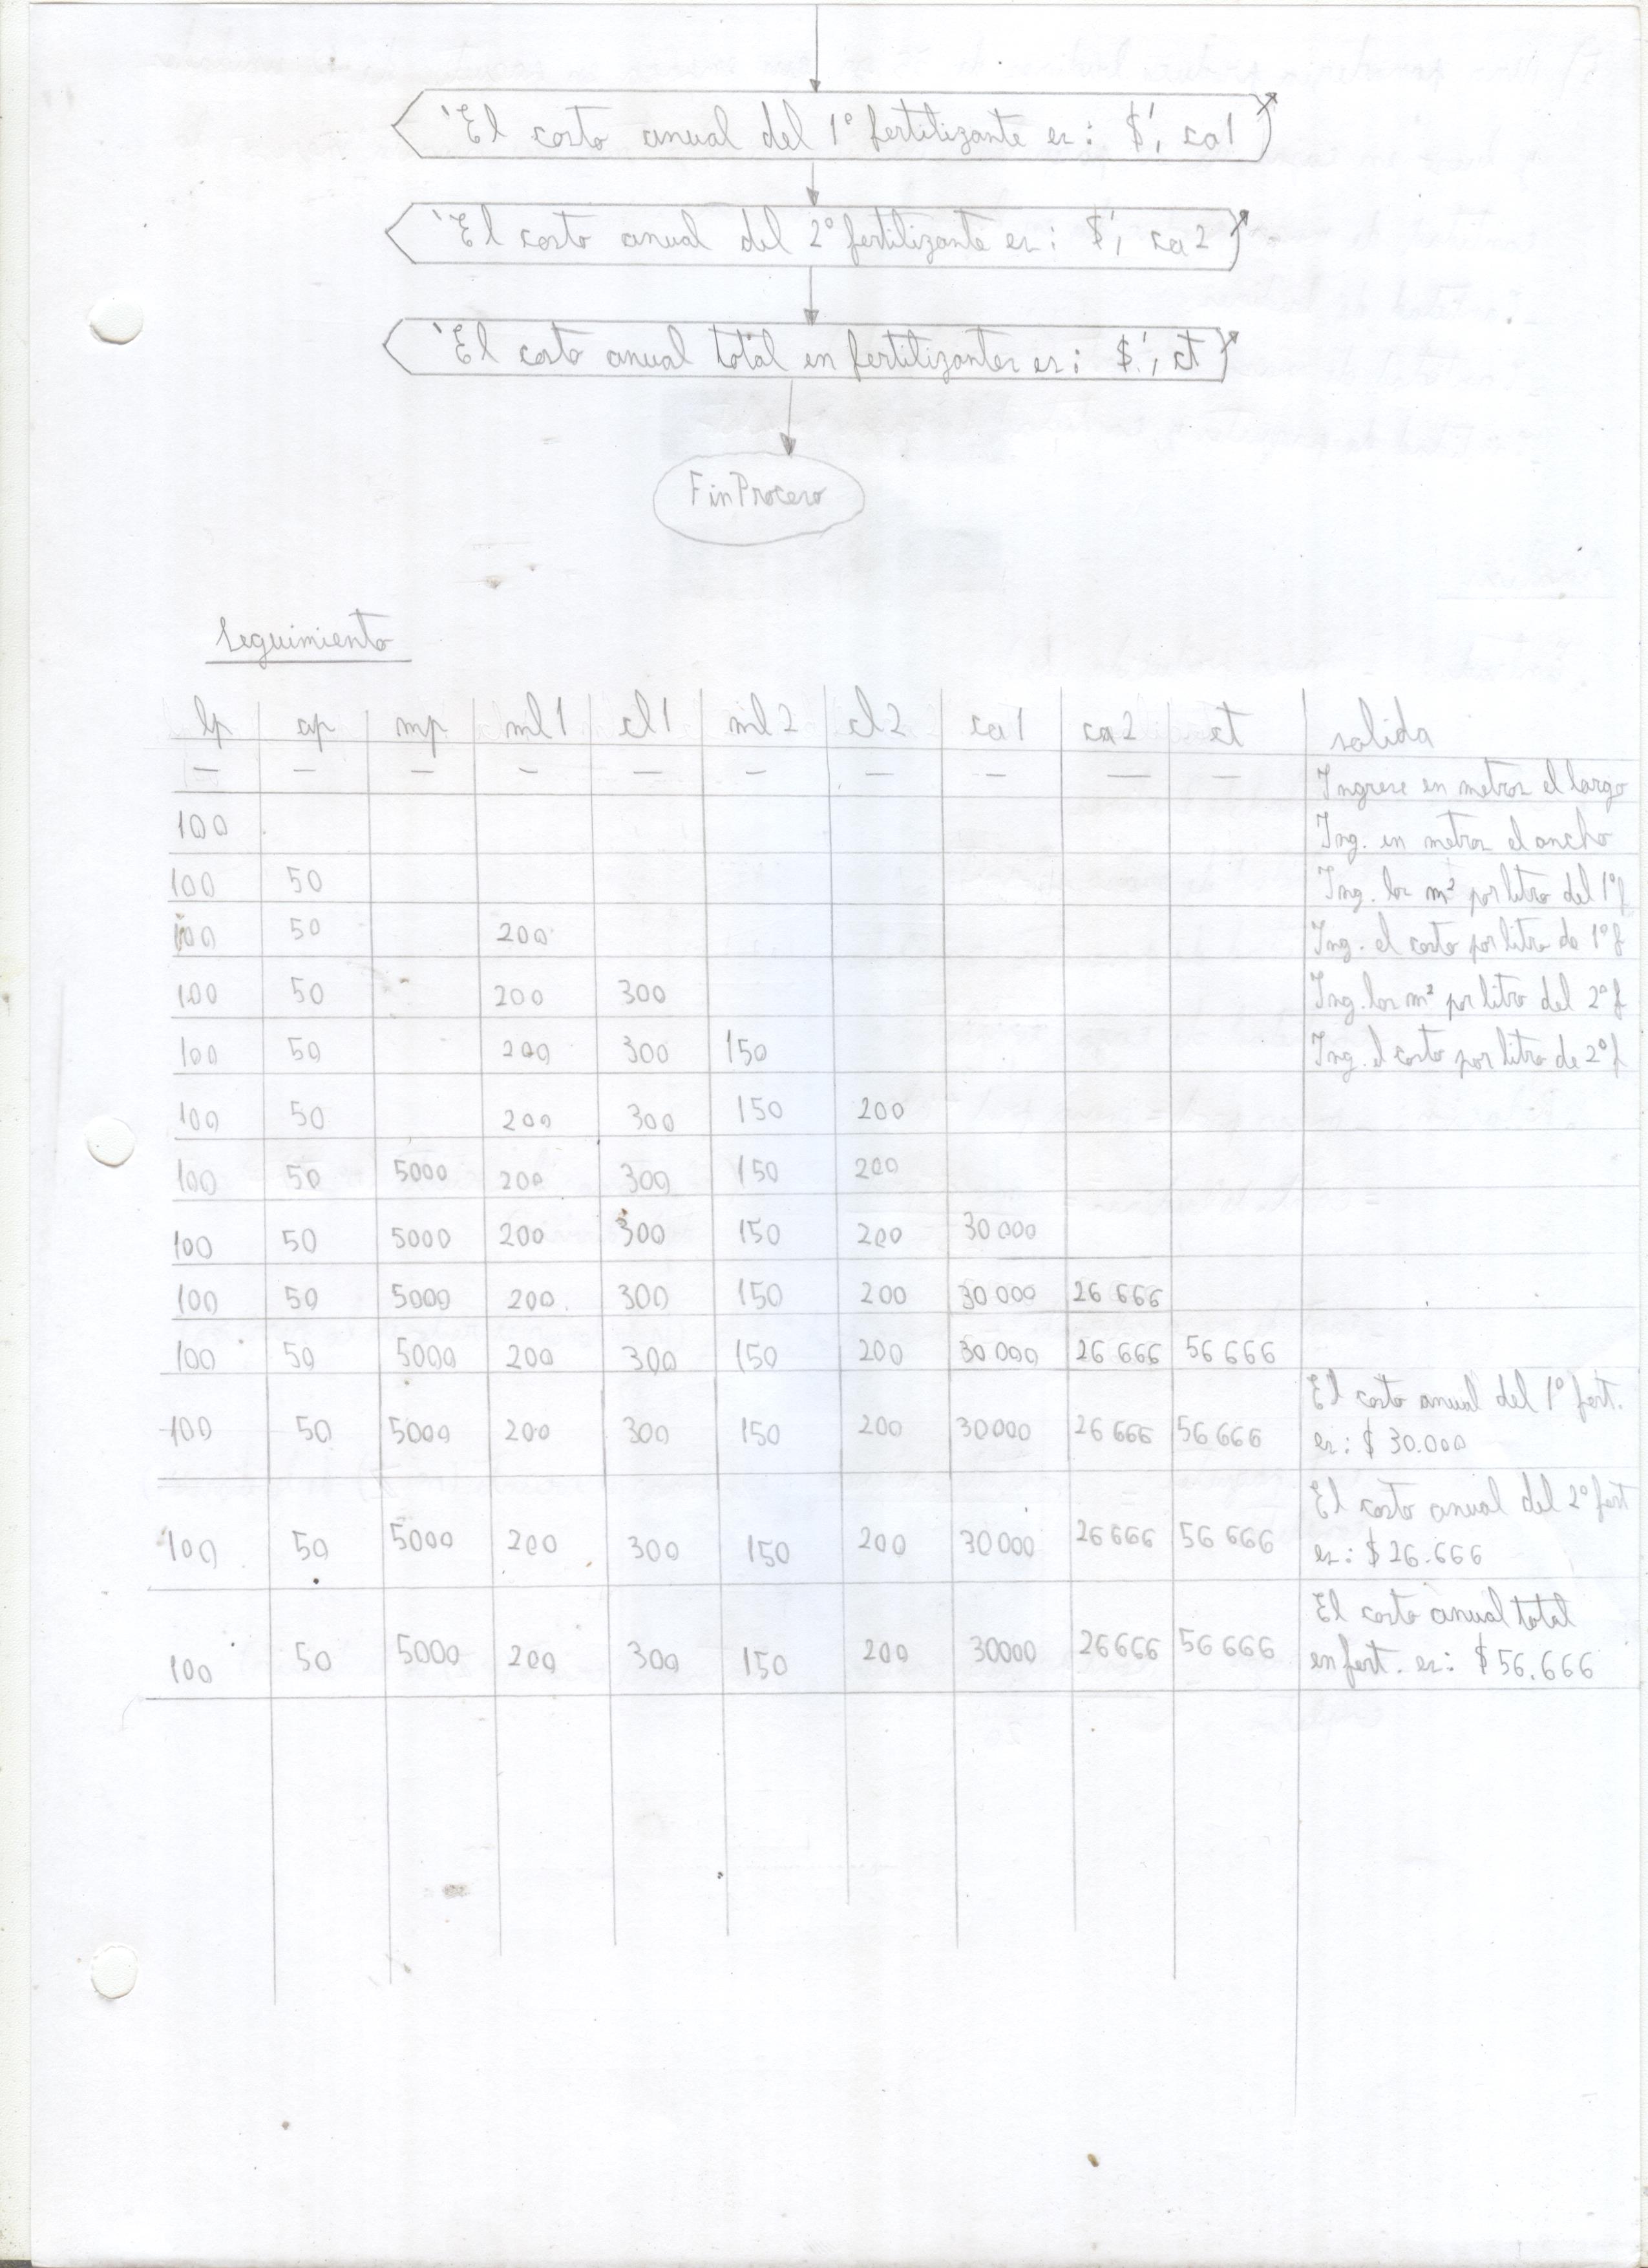 'El costo anual del 1° fertilizante es: $', ca1
'El costo anual del 2° fertilizante es: $', ca2
'El costo anual total en fertilizantes es: $', ct
FinProceso
Seguimiento
lp ap mp ml1 cl1 ml2 cl2 ca1 ca2 ct salida
— — — — — — — — — — Ingrese en metros el largo
100 Ing. en metros el ancho
100 50 Ing. los m² por litro del 1°f
100 50 200 Ing. el costo por litro de 1°f
100 50 200 300 Ing. los m² por litro del 2°f
100 50 200 300 150 Ing. el costo por litro de 2°f
100 50 200 300 150 200
100 50 5000 200 300 150 200
100 50 5000 200 300 150 200 30 000
100 50 5000 200 300 150 200 30 000 26 666
100 50 5000 200 300 150 200 30 000 26 666 56 666
El costo anual del 1° fert.
100 50 5000 200 300 150 200 30000 26 666 56 666 es: $ 30.000
El costo anual del 2° fert
100 50 5000 200 300 150 200 30000 26 666 56 666 es: $ 26.666
El costo anual total
100 50 5000 200 300 150 200 30000 26666 56 666 en fert. es: $ 56.666